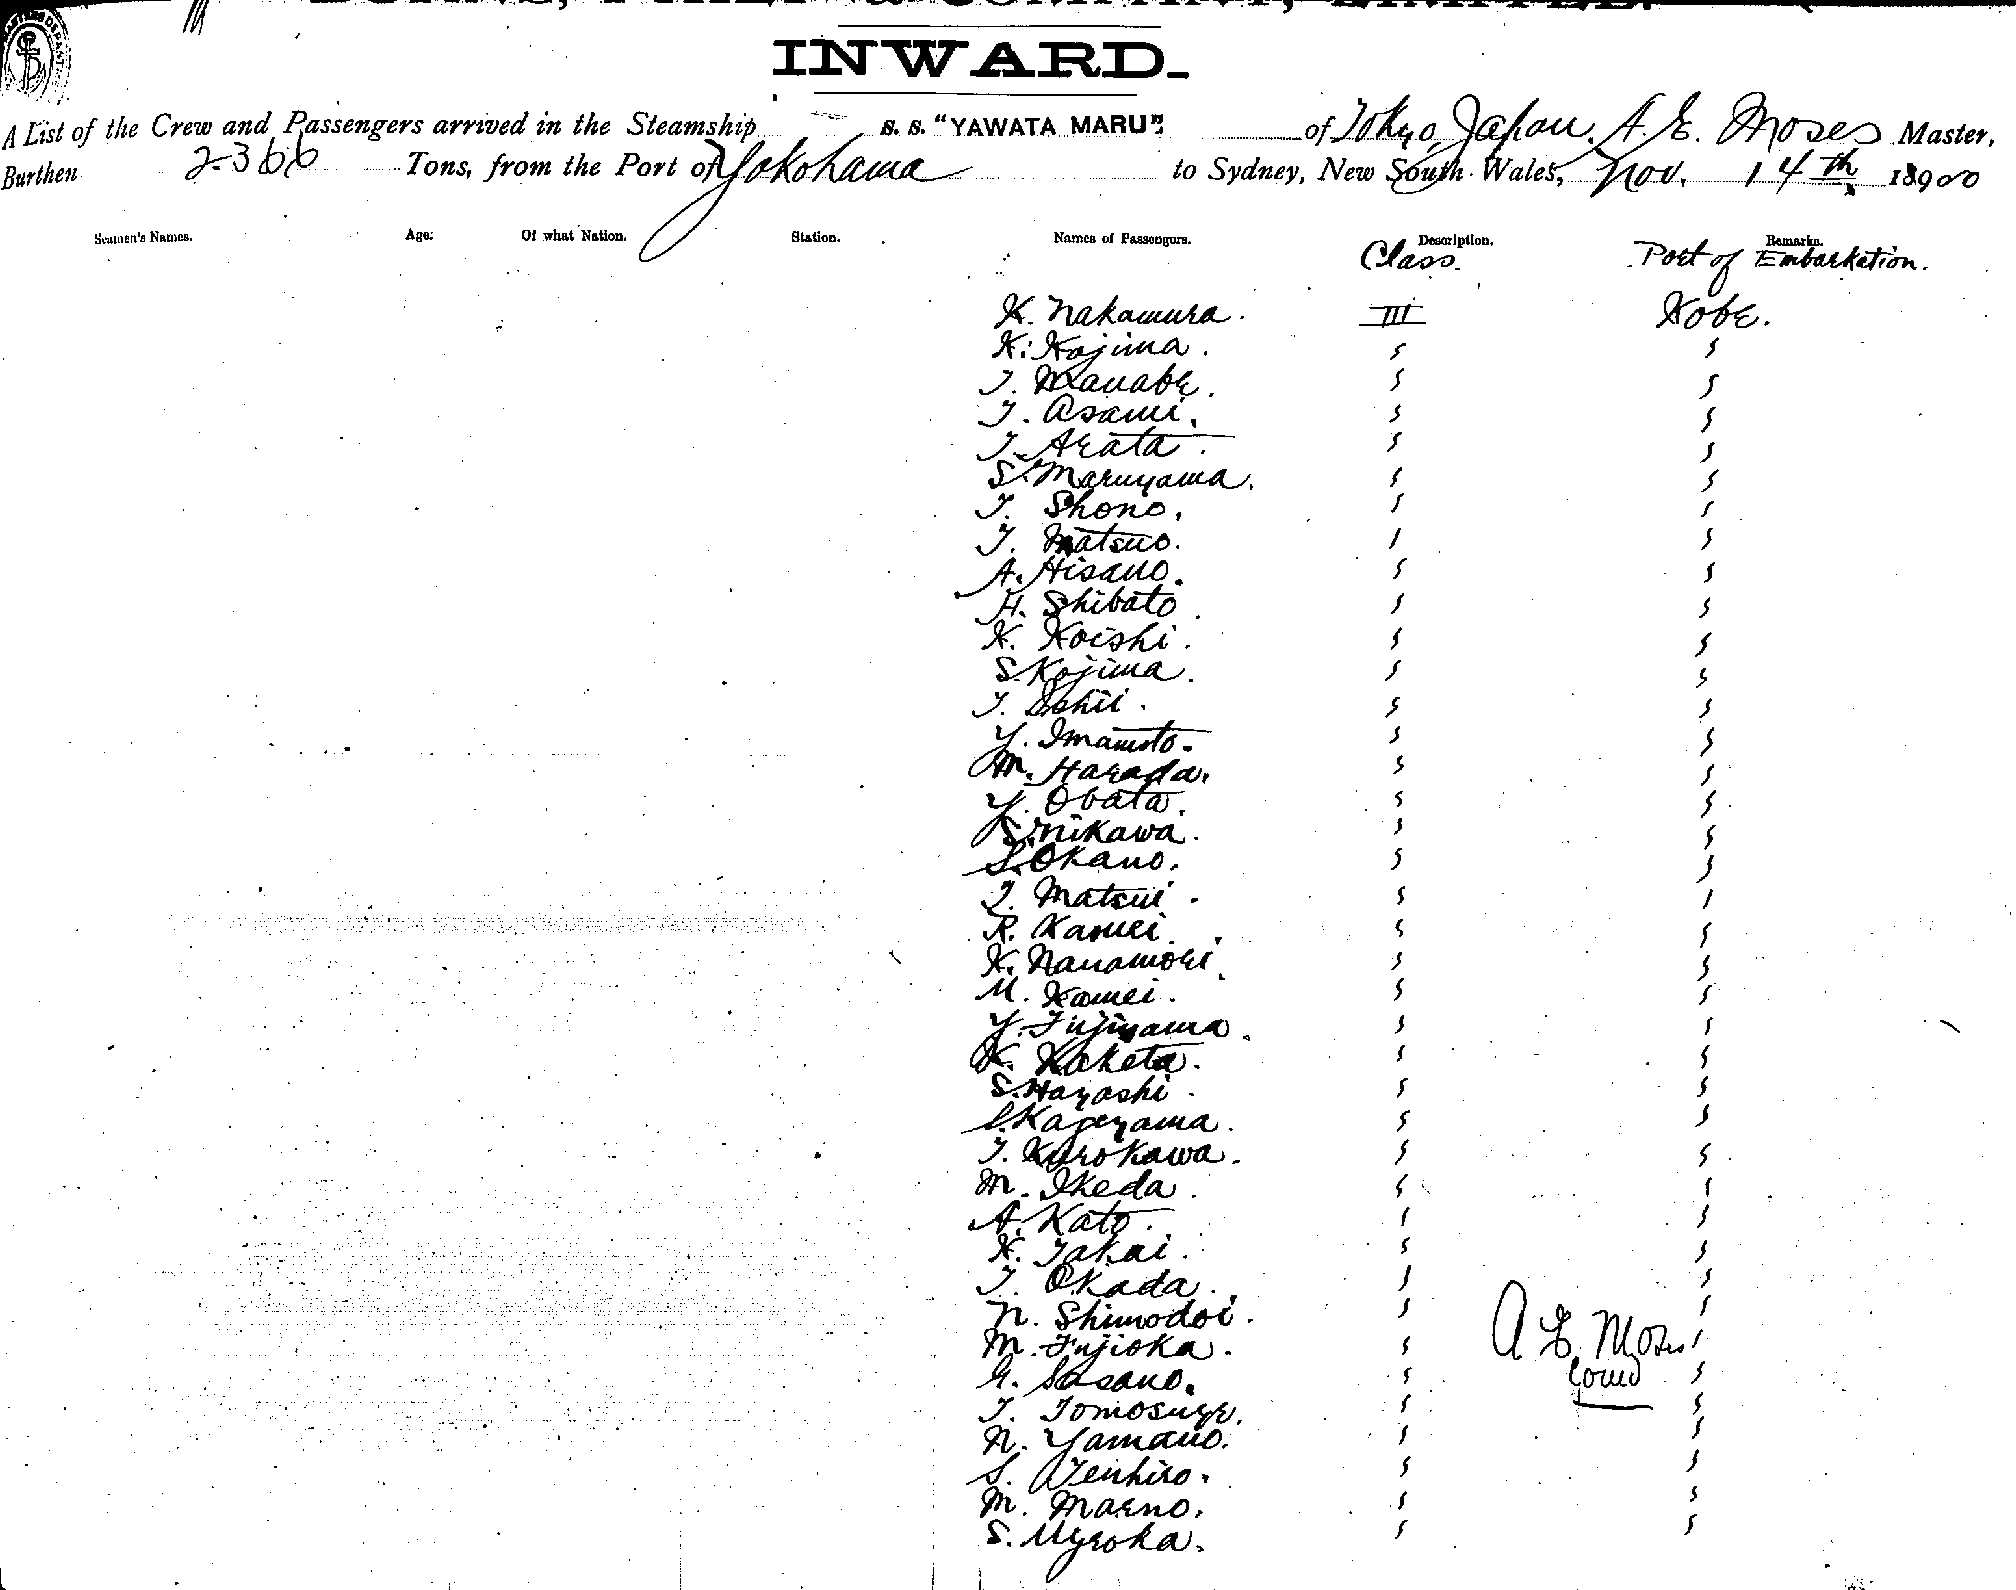 BURNS, PHILP & COMPANY, LIMITED.
INWARD.
A List of the Crew and Passengers arrived in the Steamship S. S. "YAWATA MARU", of Tokyo, Japan. A. E. Moses Master,
Burthen 2366 Tons, from the Port of Yokohama to Sydney, New South Wales, Nov. 14th 18900
Seamen's Names. Age. Of what Nation. Station. Names of Passengers. Description. Remarks.
Class. Port of Embarkation.
K. Nakamura. III Kobe.
K. Kojima. " "
T. Manabe. " "
T. Asami. " "
T. Arata. " "
S. Maruyama. " "
T. Shono. " "
T. Matsuo. " "
A. Hisano. " "
H. Shibato. " "
K. Koishi. " "
S. Kojima. " "
T. Ishii. " "
Y. Imamoto. " "
M. Harada. " "
Y. Obata. " "
S. Nikawa. " "
S. Okano. " "
T. Matsui. " "
R. Kamei. " "
K. Nanamori. " "
M. Kamei. " "
Y. Fujiyama. " "
K. Kaketa. " "
S. Hayashi. " "
S. Kageyama. " "
T. Kurokawa. " "
M. Ikeda. " "
A. Kato. " "
K. Takai. " "
T. Okada. " "
N. Shimodoi. " "
M. Fujioka. " "
G. Sasano. " "
T. Tomosuye. " "
N. Yamano. " "
S. " "
M. Maeno. " "
S. " "
A E Moses